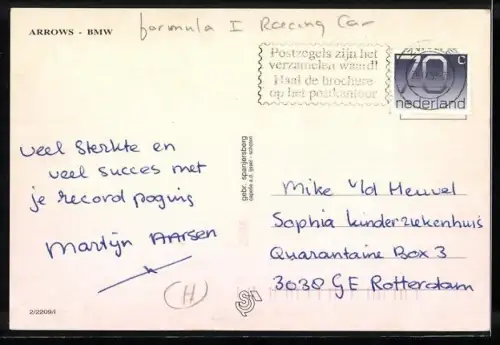 ARROWS - BMW
formula I Raecing Car
Postzegels zijn het
verzamelen waard!
Haal de brochure
op het postkantoor
70 c
nederland
veel sterkte en
veel succes met
je record poging
Martijn Aarsen
gebr. spanjersberg
capelle a.d. ijssel - schoten
Mike v/d Heuvel
Sophia kinderziekenhuis
Quarantaine Box 3
3038 GE Rotterdam
H
2/2209/I